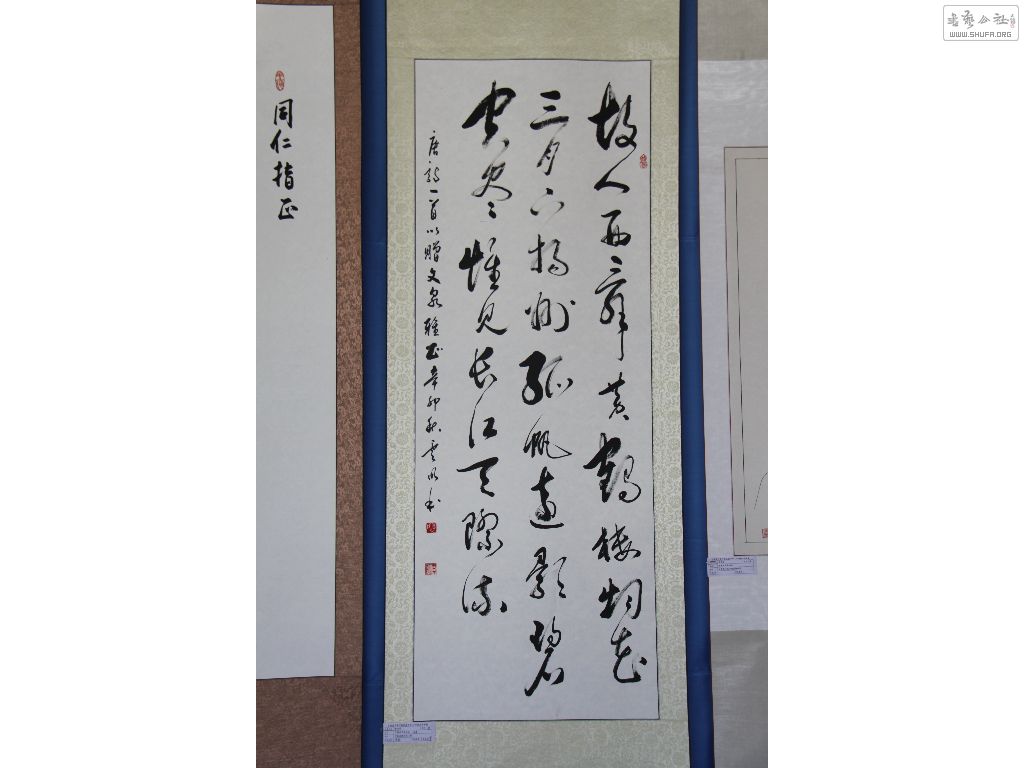 故人西辞黄鹤楼烟花
三月下扬州孤帆远影碧
空尽惟见长江天际流
唐诗一首以赠文泉雅正辛卯秋云
同仁指正
书艺公社
WWW.SHUFA.ORG